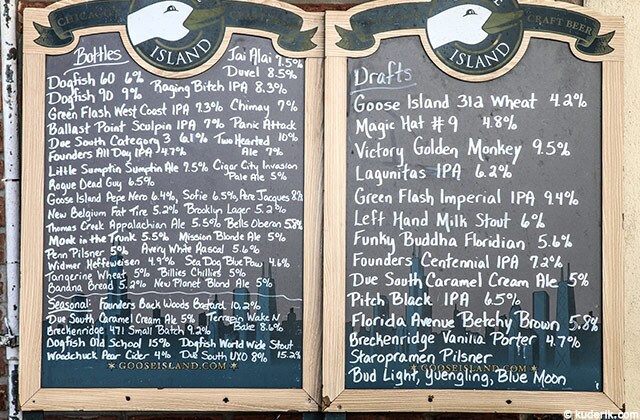 CHICAGO'S
ISLAND
Bottles
Jai Alai 7.5%
Dogfish 60 6% Duvel 8.5%
Dogfish 90 9% Raging Bitch IPA 8.3%
Green Flash West Coast IPA 7.3% Chimay 7%
Ballast Point Sculpin IPA 7% Panic Attack 10%
Due South Category 3 6.1% Two Hearted
Founders All Day IPA 4.7% Ale 7%
Little Sumptin Sumptin Ale 7.5% Cigar City Invasion
Rogue Dead Guy 6.5% Pale Ale 5%
Goose Island Pepe Nero 6.4%, Sofie 6.5%, Pere Jacques 8%
New Belgium Fat Tire 5.2% Brooklyn Lager 5.2%
Thomas Creek Appalachian Ale 5.5% Bells Oberon 5.8%
Monk in the Trunk 5.5% Mission Blonde Ale 5%
Penn Pilsner 5% Awry White Rascal 5.6%
Widmer Heffweisen 4.9% Sea Dog Blue Paw 4.6%
Tangerine Wheat 5% Billies Chillies 5%
Banana Bread 5.2% New Planet Blond Ale 5%
Seasonal: Founders Back Woods Bastard 10.2%
Due South Caramel Cream Ale 5% Terrapin Wake N
Breckenridge 471 Small Batch 9.2% Bake 8.6%
Dogfish Old School 15% Dogfish World Wide Stout
Woodchuck Pear Cider 4% Due South UXO 8% 15.2%
GOOSEISLAND.COM
CRAFT BEER
ISLAND
Drafts
Goose Island 312 Wheat 4.2%
Magic Hat #9 4.8%
Victory Golden Monkey 9.5%
Lagunitas IPA 6.2%
Green Flash Imperial IPA 9.4%
Left Hand Milk Stout 6%
Funky Buddha Floridian 5.6%
Founders Centennial IPA 7.2%
Due South Caramel Cream Ale 5%
Pitch Black IPA 6.5%
Florida Avenue Betchy Brown 5.8%
Breckenridge Vanilla Porter 4.7%
Staropramen Pilsner
Bud Light, Yuengling, Blue Moon
GOOSEISLAND.COM
© kuderik.com